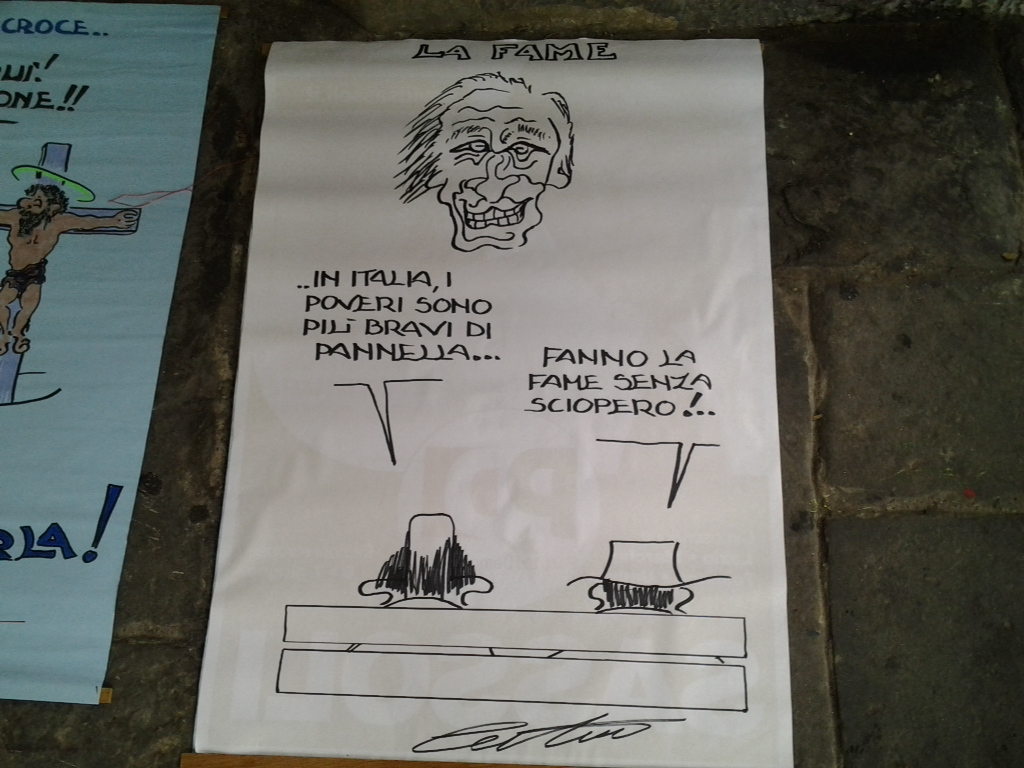 CROCE..
LA FAME
..IN ITALIA, I
POVERI SONO
PIÙ BRAVI DI
PANNELLA...
FANNO LA
FAME SENZA
SCIOPERO!..
SASSOLI
PD